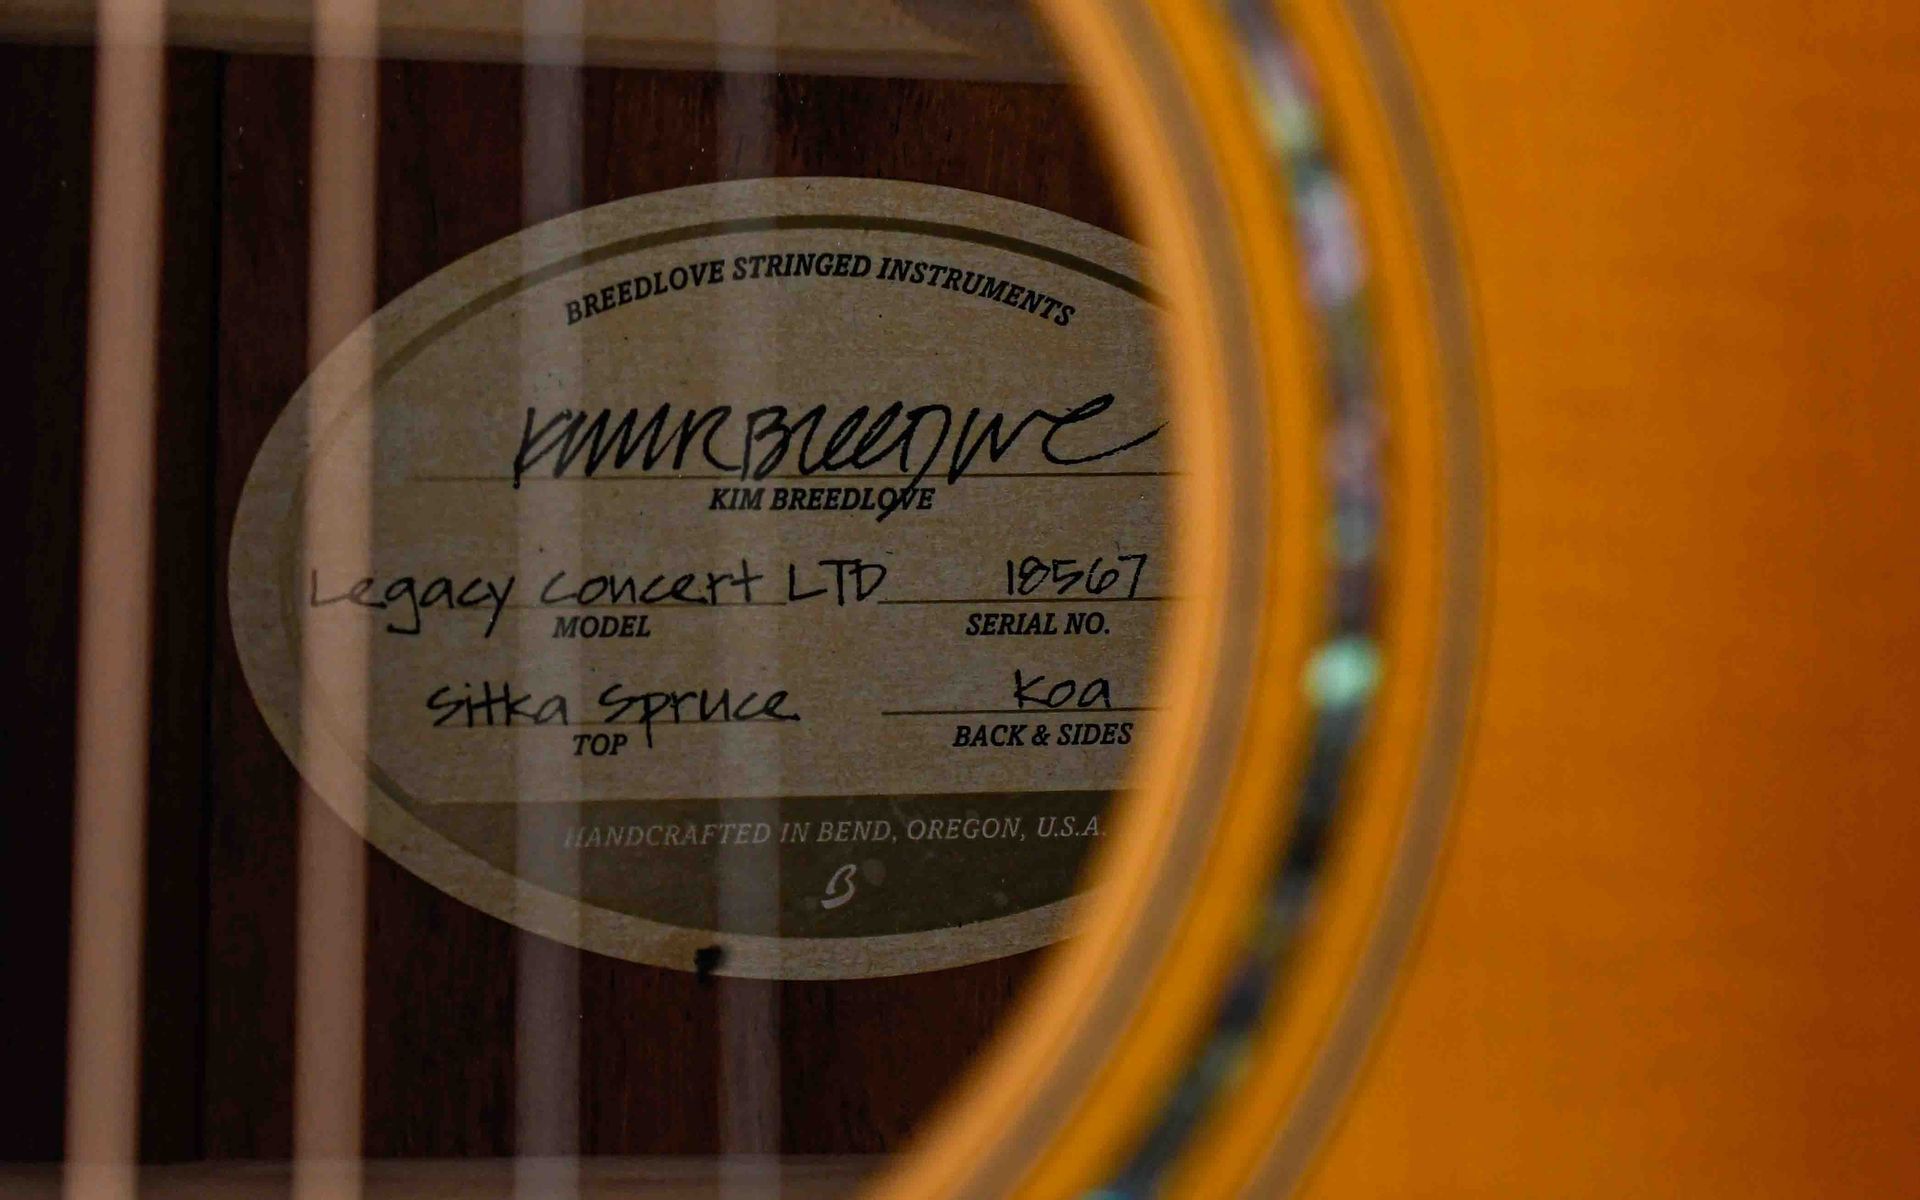 BREEDLOVE STRINGED INSTRUMENTS
Kim Breedlove
KIM BREEDLOVE
Legacy Concert LTD 18567
MODEL SERIAL NO.
Sitka Spruce Koa
TOP BACK & SIDES
HANDCRAFTED IN BEND, OREGON, U.S.A.
B